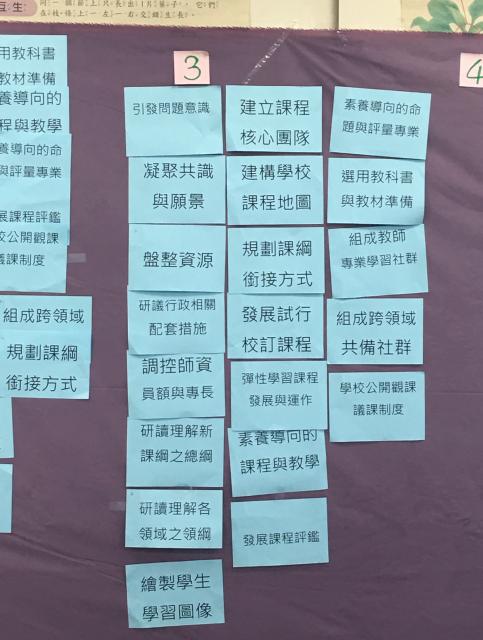 互生
選用教科書
教材準備
素養導向的
課程與教學
素養導向的命
題與評量專業
發展課程評鑑
學校公開觀課
議課制度
組成跨領域
規劃課綱
銜接方式
3
引發問題意識
凝聚共識
與願景
盤整資源
研議行政相關
配套措施
調控師資
員額與專長
研讀理解新
課綱之總綱
研讀理解各
領域之領綱
繪製學生
學習圖像
建立課程
核心團隊
建構學校
課程地圖
規劃課綱
銜接方式
發展試行
校訂課程
彈性學習課程
發展與運作
素養導向的
課程與教學
發展課程評鑑
素養導向的命
題與評量專業
選用教科書
與教材準備
組成教師
專業學習社群
組成跨領域
共備社群
學校公開觀課
議課制度
4